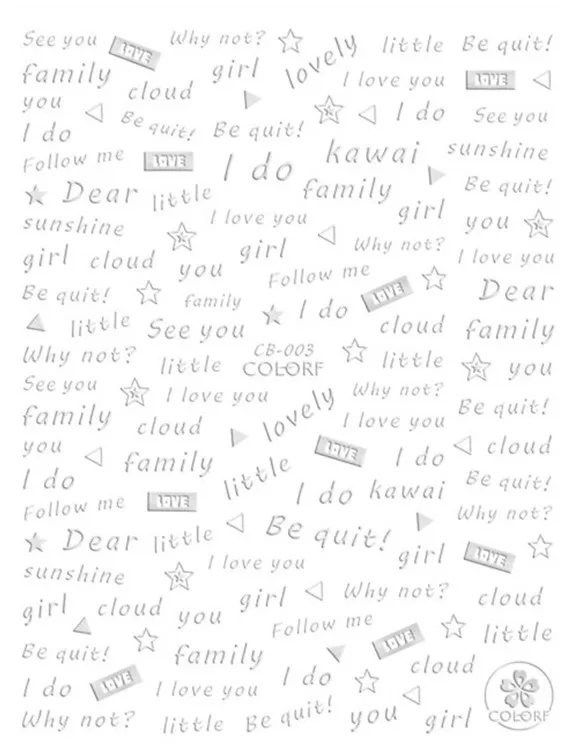 See you LOVE Why not? lovely little Be quit!
family girl I love you LOVE
you cloud I do See you
I do Be quit! Be quit!
Follow me LOVE I do kawai sunshine
Dear little family Be quit!
sunshine I love you girl you
girl cloud you girl Why not? I love you
Be quit! family Follow me LOVE Dear
little See you I do cloud family
Why not? little CB-003 little you
COLORF
See you I love you lovely Why not?
family cloud I love you Be quit!
you family LOVE I do cloud
I do little I do kawai Be quit!
Follow me LOVE Why not?
Dear little Be quit! girl LOVE
sunshine I love you
girl cloud you girl Why not? cloud
Follow me LOVE little
Be quit! family cloud
I do LOVE I love you I do
Why not? little Be quit! you girl COLORF